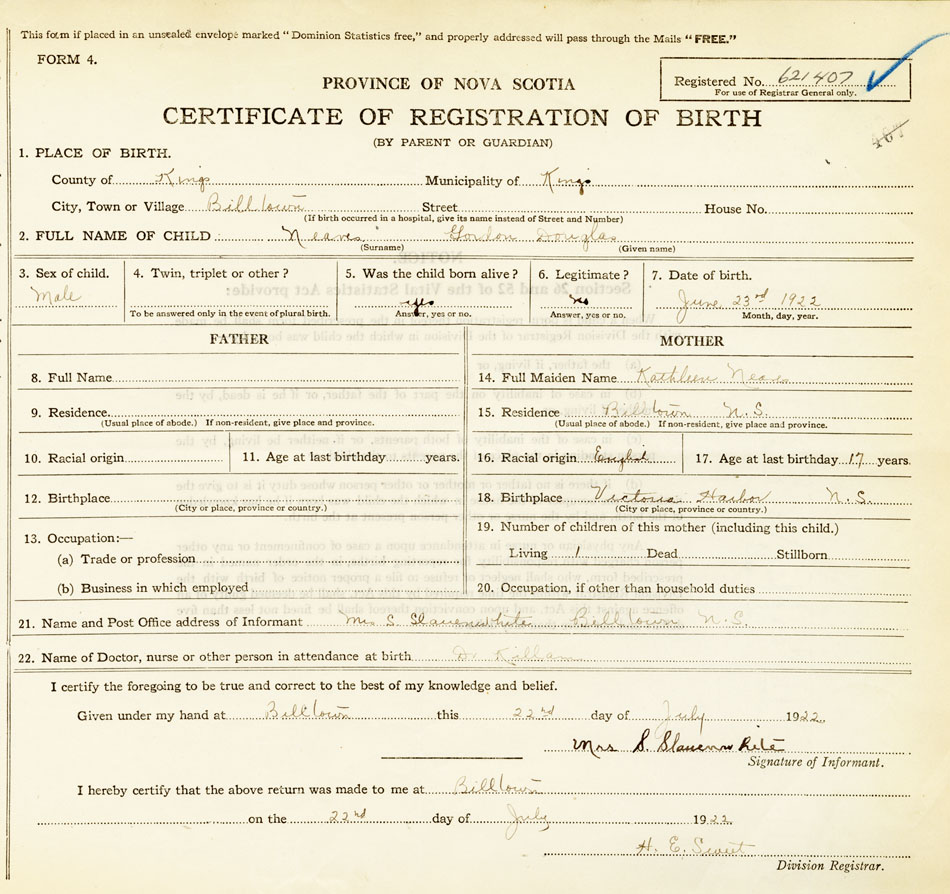 This form if placed in an unsealed envelope marked "Dominion Statistics free," and properly addressed will pass through the Mails "FREE."
FORM 4.
Registered No. 621407
For use of Registrar General only.
PROVINCE OF NOVA SCOTIA
CERTIFICATE OF REGISTRATION OF BIRTH
(BY PARENT OR GUARDIAN)
467
1. PLACE OF BIRTH.
County of Kings Municipality of Kings
City, Town or Village Billtown Street House No.
(If birth occurred in a hospital, give its name instead of Street and Number)
2. FULL NAME OF CHILD Neaves Gordon Douglas
(Surname) (Given name)
3. Sex of child. 4. Twin, triplet or other? 5. Was the child born alive? 6. Legitimate? 7. Date of birth.
Male yes no June 23rd 1922
To be answered only in the event of plural birth. Answer, yes or no. Answer, yes or no. Month, day, year.
FATHER MOTHER
8. Full Name 14. Full Maiden Name Kathleen Neaves
9. Residence 15. Residence Billtown N.S.
(Usual place of abode.) If non-resident, give place and province. (Usual place of abode.) If non-resident, give place and province.
10. Racial origin 11. Age at last birthday years. 16. Racial origin English 17. Age at last birthday 17 years.
12. Birthplace 18. Birthplace Victoria Harbor N.S.
(City or place, province or country.) (City or place, province or country.)
13. Occupation:— 19. Number of children of this mother (including this child.)
(a) Trade or profession Living 1 Dead Stillborn
(b) Business in which employed 20. Occupation, if other than household duties
21. Name and Post Office address of Informant Mrs S. Slauenwhite Billtown N.S.
22. Name of Doctor, nurse or other person in attendance at birth Dr Killam
I certify the foregoing to be true and correct to the best of my knowledge and belief.
Given under my hand at Billtown this 22nd day of July 1922
Mrs S. Slauenwhite
Signature of Informant.
I hereby certify that the above return was made to me at Billtown
on the 22nd day of July 1922
H. E. Sweet
Division Registrar.